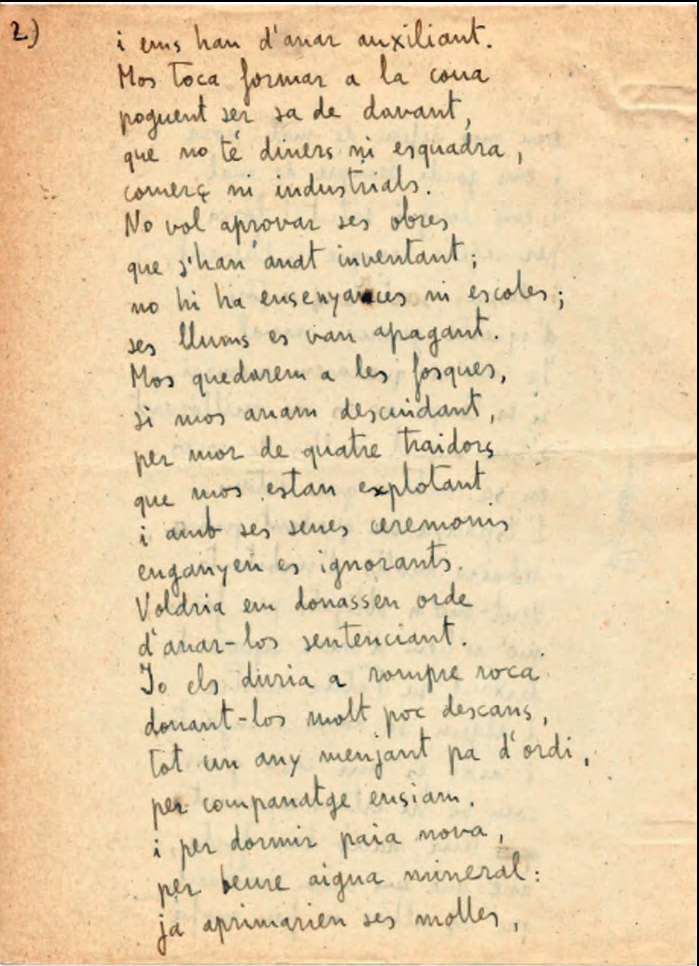 2.)
i ens han d'anar auxiliant.
Mos toca formar a la coua
poguent ser sa de davant,
que no té diners ni esquadra,
comerç ni industrials.
No vol aprovar ses obres
que s'han anat inventant;
no hi ha ensenyances ni escoles;
ses llums es van apagant.
Mos quedarem a les fosques,
si mos anam descuidant,
per mor de quatre traidors
que mos estan explotant
i amb ses seues ceremonis
enganyen es ignorants.
Voldria em donassen orde
d'anar-los sentenciant.
Jo els duria a rompre roca
donant-los molt poc descans,
tot un any menjant pa d'ordi,
per companatge ensiam.
i per dormir paia nova,
per beure aigua mineral:
ja aprimarien ses molles,